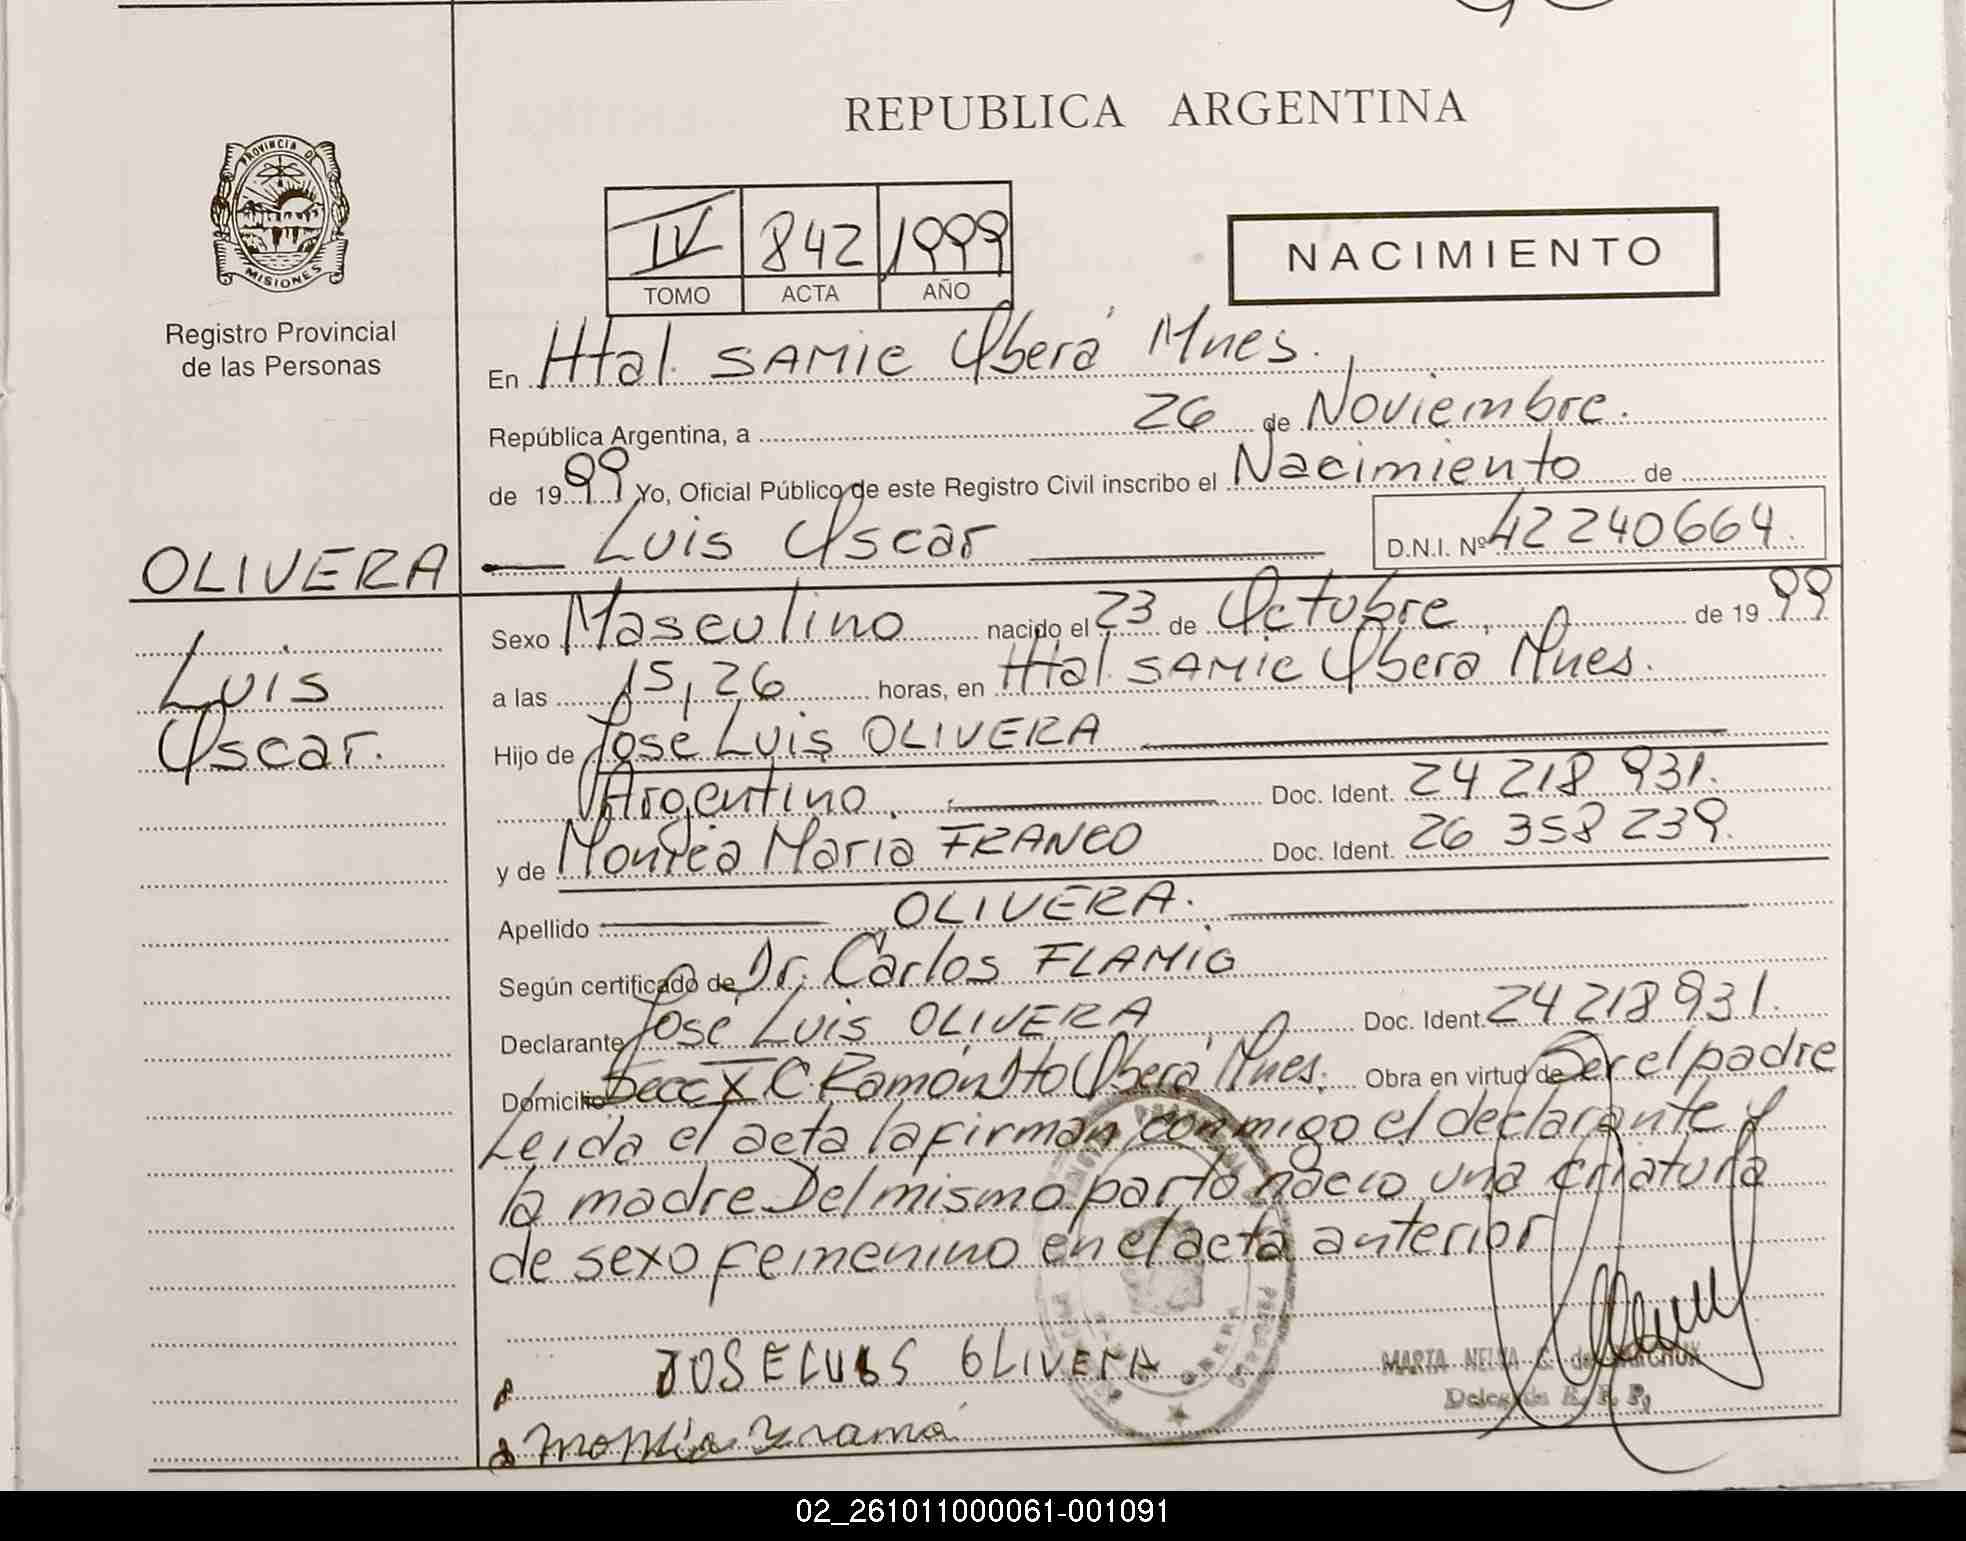 REPUBLICA ARGENTINA
PROVINCIA DE
MISIONES
Registro Provincial
de las Personas
IV 842 1999
TOMO ACTA AÑO
NACIMIENTO
En Htal. SAMIC Oberá Mnes.
República Argentina, a 26 de Noviembre.
de 1999 Yo, Oficial Público de este Registro Civil inscribo el Nacimiento de
Luis Oscar D.N.I. Nº 42 240664.
OLIVERA
Luis
Oscar.
Sexo Masculino nacido el 23 de Octubre, de 1999
a las 15,26 horas, en Htal. SAMIC Obera Mnes.
Hijo de José Luis OLIVERA
Argentino. Doc. Ident. 24 218 931.
y de Monica Maria FRANCO Doc. Ident. 26 358 239.
Apellido OLIVERA.
Según certificado de Dr. Carlos FLAMIG
Declarante José Luis OLIVERA Doc. Ident. 24 218 931.
Domicilio Secc X C. Ramón Oberá Mnes. Obra en virtud de Ser el padre
Leida el acta la firman conmigo el declarante y
la madre Del mismo parto nacio una criatura
de sexo femenino en el acta anterior
JOSE LUIS OLIVERA
MARTA
Delegada R. P. P.
02_261011000061-001091